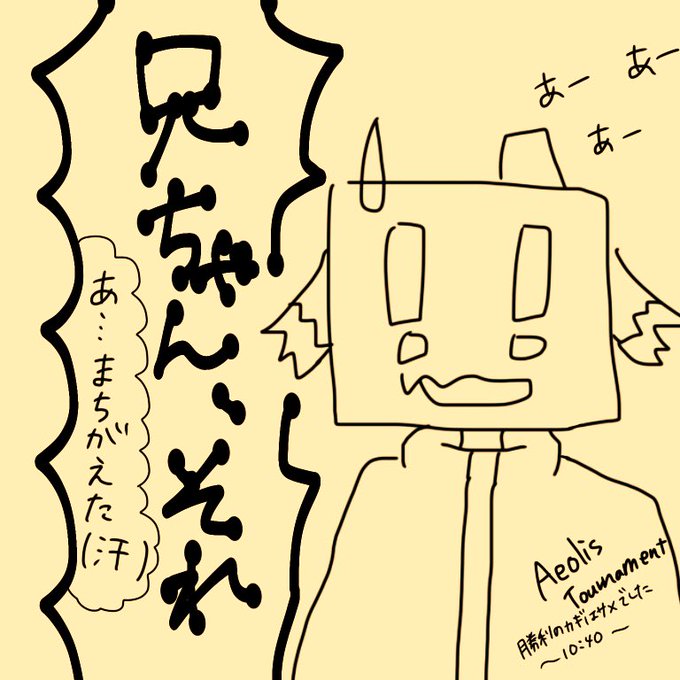 あー
あー
あー
兄ちゃん、それ
あ…まちがえた(汗)
Aeolis
Tournament
勝利のカギはサメでした
～10:40～